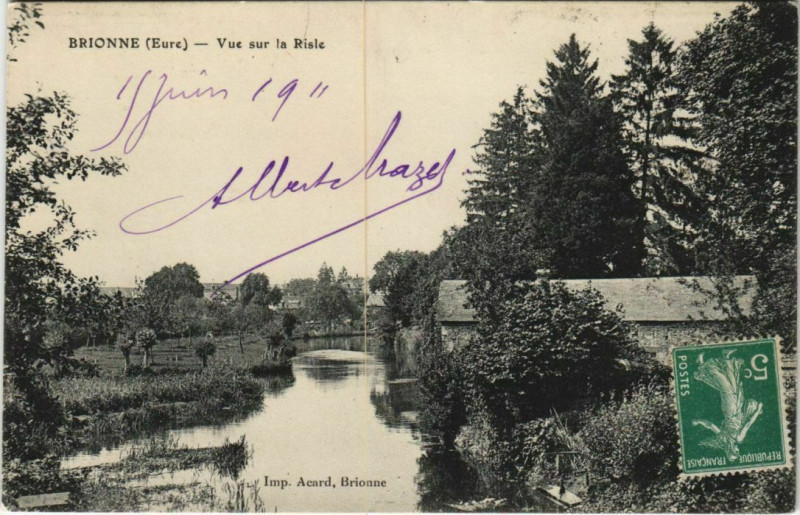 BRIONNE (Eure) — Vue sur la Risle
juin 1911
Albert
Imp. Acard, Brionne
5c
POSTES
RÉPUBLIQUE FRANÇAISE